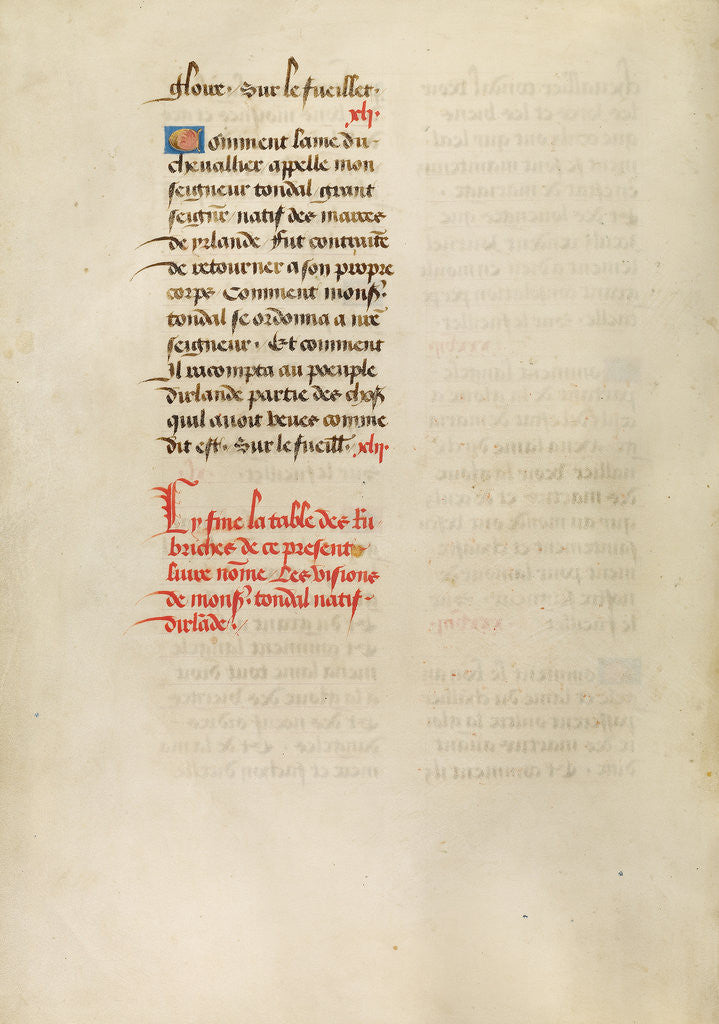 gloire. Sur le fueillet.
xlj.
Comment lame du
cheuallier appelle mon
seigneur tondal grant
seignr natif des marces
de yrlande fut contrainte
de retourner a son propre
corps Comment monsr.
tondal se ordonna a nre
seigneur. Et comment
Il racompta au poeuple
dirlande partie des chos
quil auoit veues comme
dit est. Sur le fueill. xlij.
Cy fine la table des Ru
briches de ce present
liure nōme Les visions
de monsr. tondal natif
dirlāde.